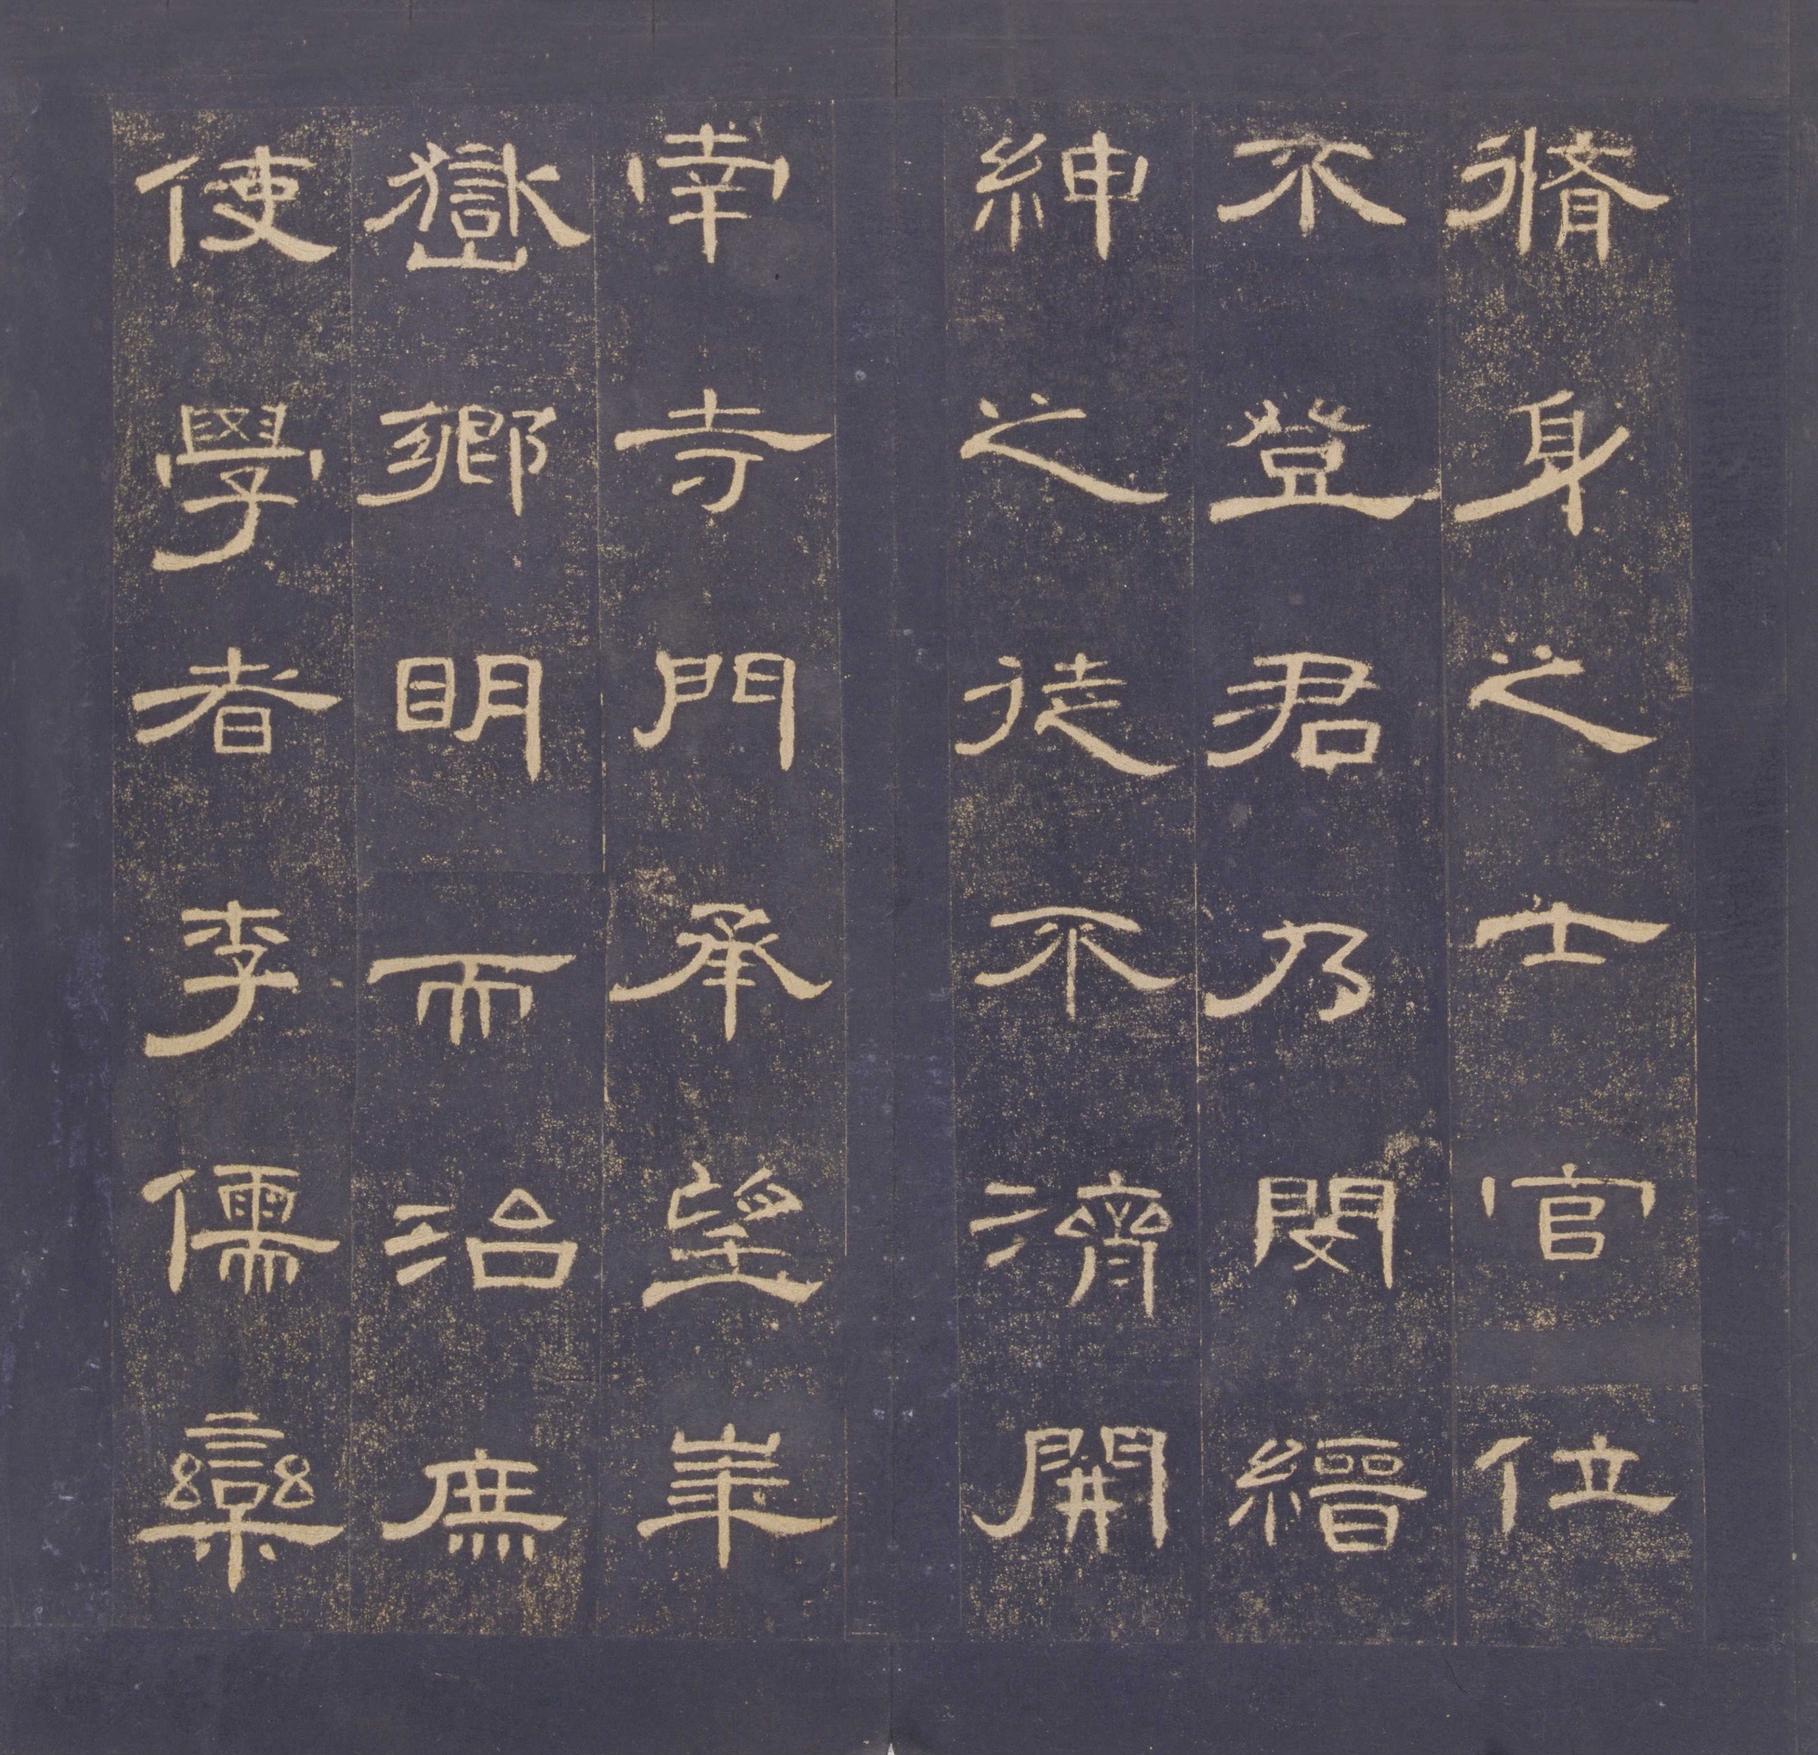 脩身之士官位
不登君乃閔縉
紳之徒不濟開
南寺門承望崋
嶽鄉眀而治庶
使學者李儒欒